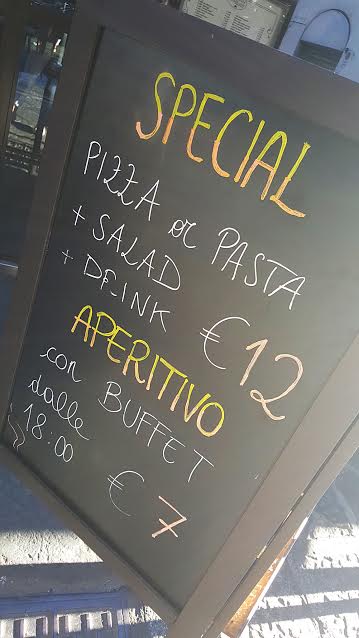 SPECIAL
PIZZA or PASTA
+ SALAD
+ DRINK €12
APERITIVO
con BUFFET
dalle
18:00 €7